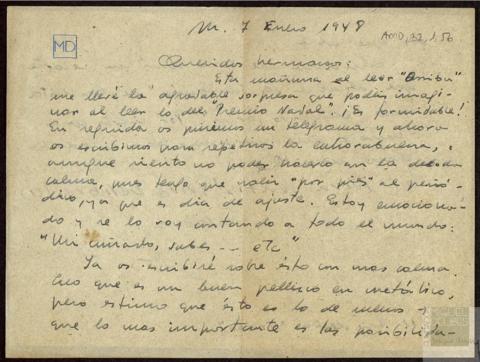 M. 7 Enero 1948
AMD, 32, 1, 56
MD
Queridos hermanos:
Esta mañana al leer "Arriba"
me llevé la agradable sorpresa que podéis imagi-
nar al leer lo del "Premio Nadal". ¡Es formidable!
En seguida os pusimos un telegrama y ahora
os escribimos para repetiros la enhorabuena,
aunque siento no poder hacerlo con la debida
calma, pues tengo que salir "por pies" al perió-
dico, ya que es día de ajuste. Estoy emociona-
do y se lo voy contando a todo el mundo:
"Mi cuñado, sabes -- etc"
Ya os escribiré sobre ésto con mas calma.
Creo que es un buen pellizco en metálico,
pero estimo que ésto es lo de menos y
que lo mas importante es las posibilida-